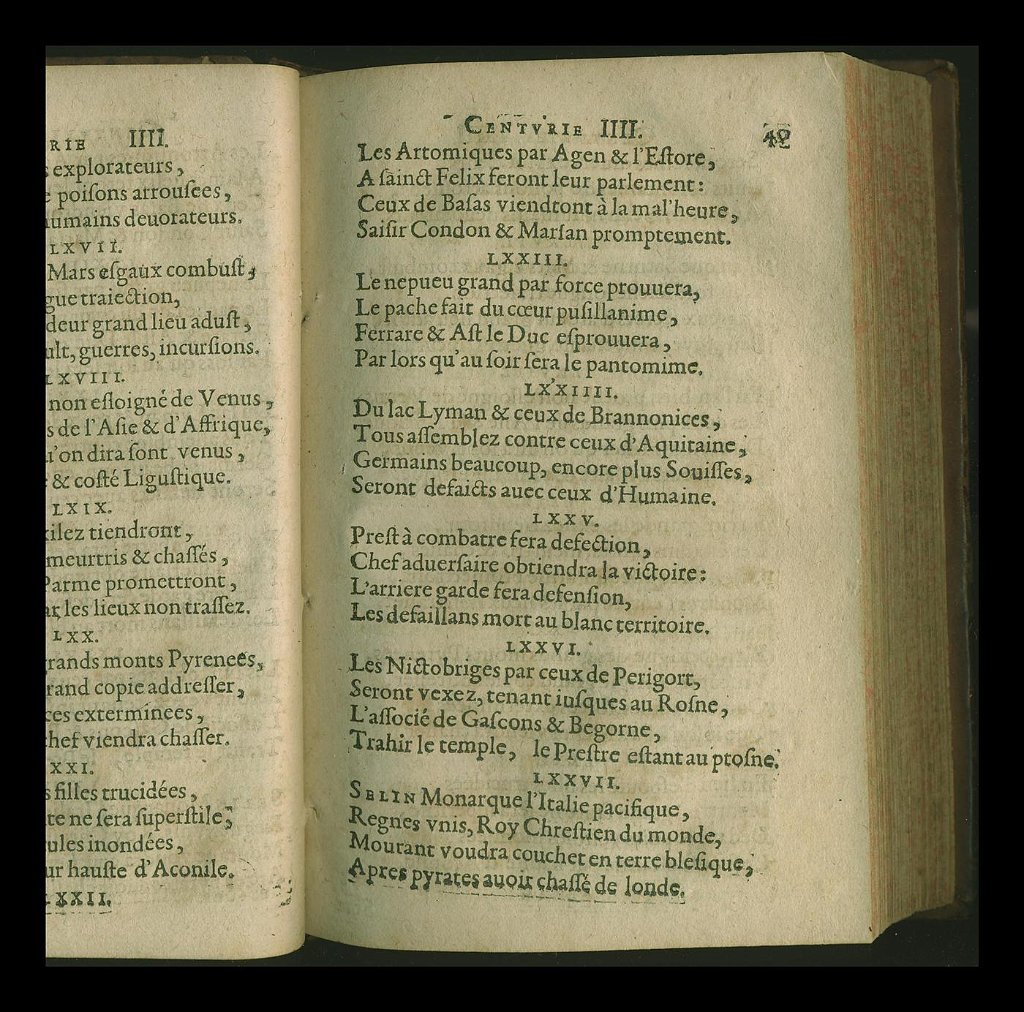 RIE IIII.
s explorateurs,
e poiſons arrouſees,
umains deuorateurs.
LXVII.
Mars eſgaux combuſt,
gue traiection,
deur grand lieu aduſt,
ult, guerres, incurſions.
LXVIII.
non eſloigné de Venus,
s de l'Aſie & d'Affrique,
u'on dira ſont venus,
& coſté Liguſtique.
LXIX.
xilez tiendront,
meurtris & chaſſés,
Parme promettront,
ar les lieux non traſſez.
LXX.
rands monts Pyrenees,
rand copie addreſſer,
ces exterminees,
chef viendra chaſſer.
XXI.
s filles trucidées,
te ne ſera ſuperſtile;
ules inondées,
ur hauſte d'Aconile.
LXXII.
CENTVRIE IIII. 42
Les Artomiques par Agen & l'Eſtore,
A ſainct Felix feront leur parlement:
Ceux de Baſas viendtont à la mal'heure,
Saiſir Condon & Marſan promptement.
LXXIII.
Le nepueu grand par force prouuera,
Le pache fait du cœur puſillanime,
Ferrare & Aſt le Duc eſprouuera,
Par lors qu'au ſoir ſera le pantomime.
LXXIIII.
Du lac Lyman & ceux de Brannonices,
Tous aſſemblez contre ceux d'Aquitaine,
Germains beaucoup, encore plus Souiſſes,
Seront defaicts auec ceux d'Humaine.
LXXV.
Preſt à combatre fera defection,
Chef aduerſaire obtiendra la victoire:
L'arriere garde fera defenſion,
Les defaillans mort au blanc territoire.
LXXVI.
Les Nictobriges par ceux de Perigort,
Seront vexez, tenant iuſques au Roſne,
L'aſſocié de Gaſcons & Begorne,
Trahir le temple, le Preſtre eſtant au ptoſne.
LXXVII.
SELIN Monarque l'Italie pacifique,
Regnes vnis, Roy Chreſtien du monde,
Mourant voudra couchet en terre bleſique,
Apres pyrates auoir chaſſé de londe.